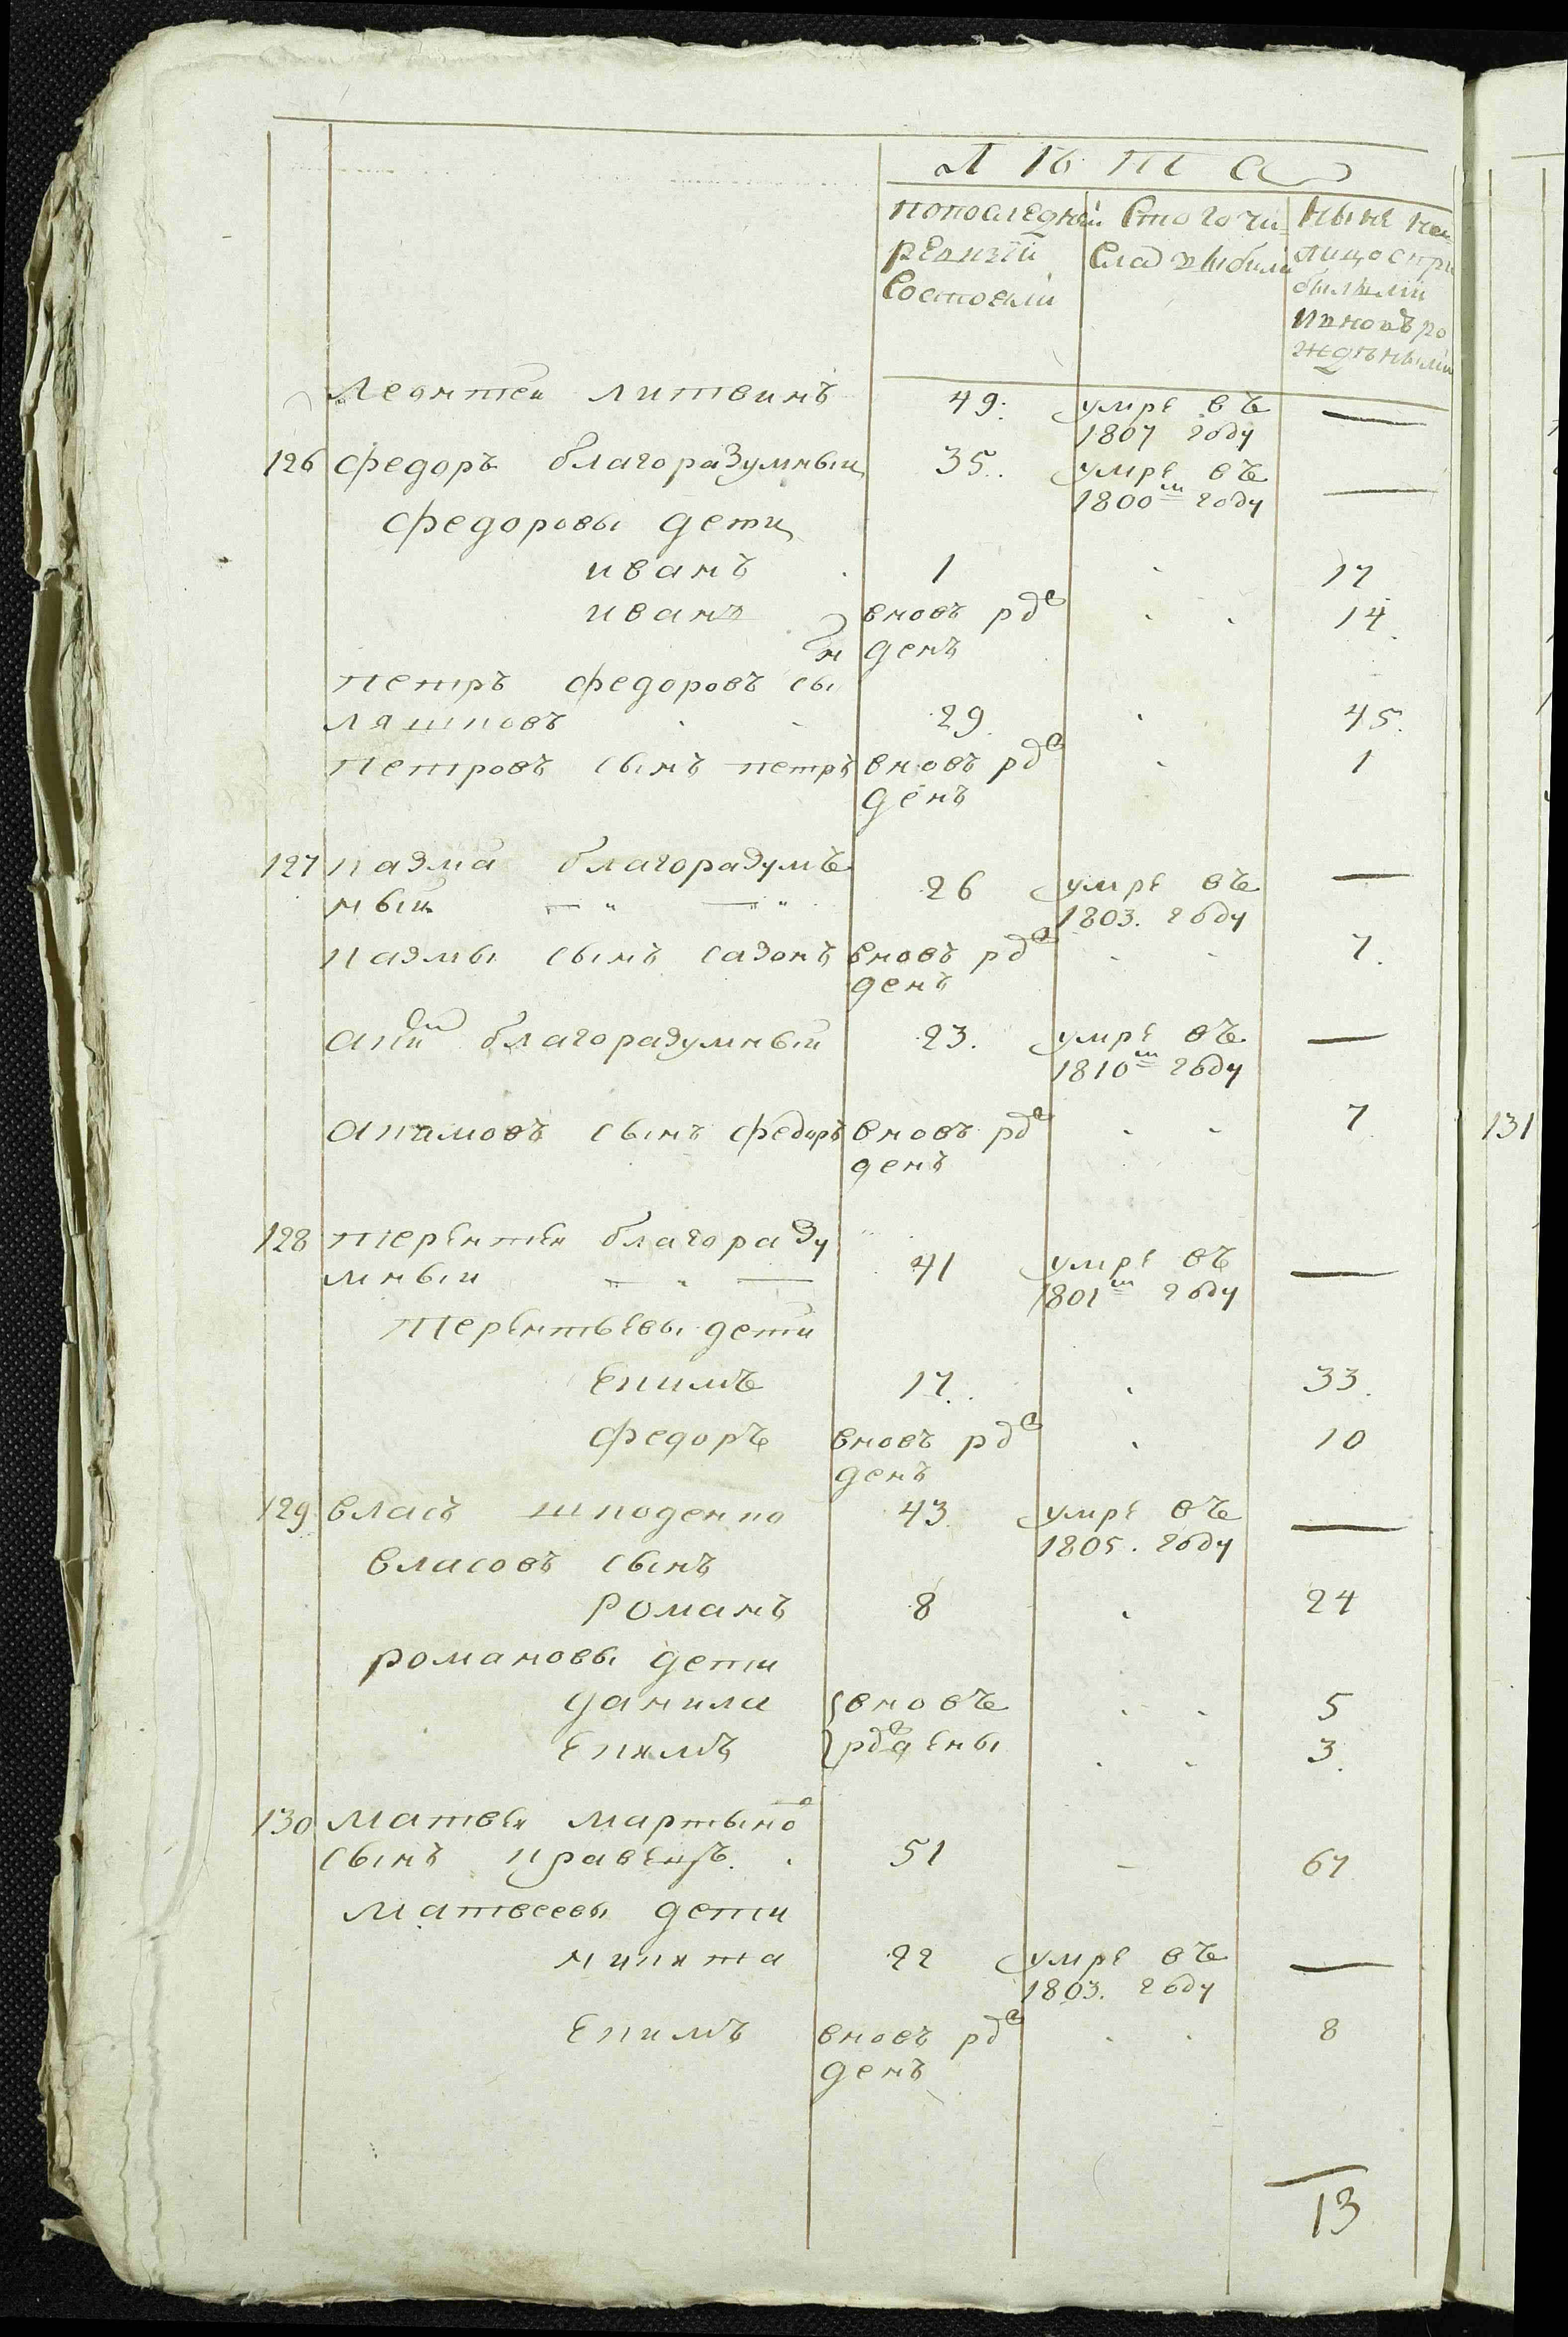 Лѣта
попоследней Стого чи- Ныне на
ревизїи сла выбыли лицо спри
Состояли былыми
ивновъ ро
жденными
Леонтеи литвинъ 49. умре въ —
1807 году
126 федоръ благоразумныи 35. умре въ —
1800м году
федоровы дети
иванъ 1 17
иванъ вновь рде 14
денъ
петръ федоровъ сын
ляшковъ 29 45.
петровъ сынъ петръ вновь рде 1
денъ
127 казма благоразумъ 26 умре въ —
ный 1803. году
казмы сынъ сазонъ вновь рде 7.
денъ
аким благоразумный 23. умре въ —
1810м году
акимовъ сынъ федоръ вновь рде 7
денъ
131
128 терентеи благоразу
мныи 41 умре въ —
1801м году
терентьевы дети
екимъ 17. 33.
федоръ вновь рде 10
денъ
129 власъ шкоденко 43 умре въ —
1805. году
власовъ сынъ
романъ 8 24
романовы дети
данила вновъ 5
екимъ рдедены 3.
130 матвеи мартыно
сынъ кравецъ. 51 - 67
матвеевы дети
никита 22 умре въ —
1803. году
екимъ вновь рде 8
денъ
13